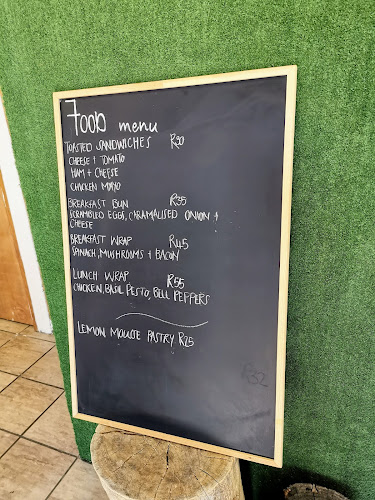 Food menu
TOASTED SANDWICHES R30
CHEESE + TOMATO
HAM + CHEESE
CHICKEN MAYO
BREAKFAST BUN R35
SCRAMBLED EGGS, CARAMALISED ONION +
CHEESE
BREAKFAST WRAP R45
SPINACH, MUSHROOMS + BACON
LUNCH WRAP R55
CHICKEN, BASIL PESTO, BELL PEPPERS
LEMON MOUSSE PASTRY R25
R32